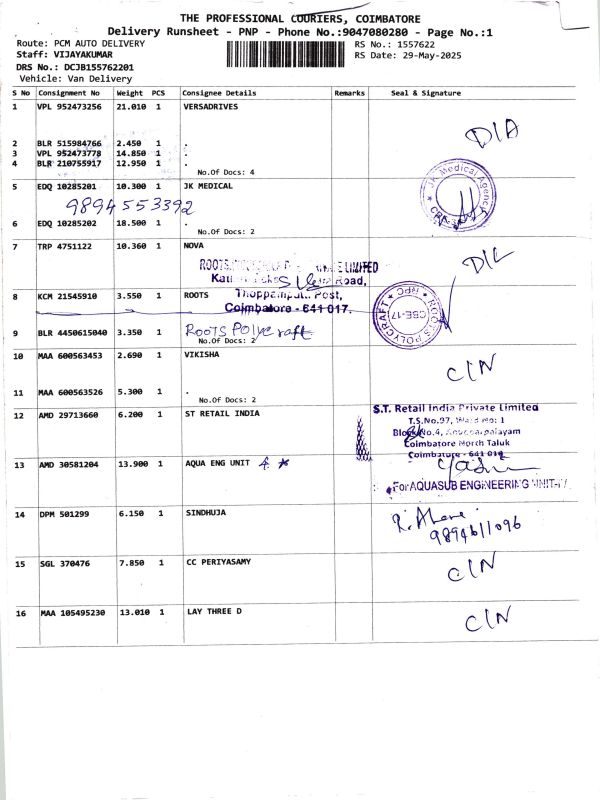 THE PROFESSIONAL COURIERS, COIMBATORE
Delivery Runsheet - PNP - Phone No.:9047080280 - Page No.:1
Route: PCM AUTO DELIVERY
RS No.: 1557622
Staff: VIJAYAKUMAR
RS Date: 29-May-2025
DRS No.: DCJB155762201
Vehicle: Van Delivery
S No Consignment No Weight PCS Consignee Details Remarks Seal & Signature
1 VPL 952473256 21.010 1 VERSADRIVES
DIA
2 BLR 515984766 2.450 1 .
3 VPL 952473778 14.850 1 .
4 BLR 210755917 12.950 1 .
No.Of Docs: 4
5 EDQ 10285201 10.300 1 JK MEDICAL
JK Medical Agency
9894553392
6 EDQ 10285202 18.500 1 .
No.Of Docs: 2
7 TRP 4751122 10.360 1 NOVA
DIL
LIMITED
Road,
8 KCM 21545910 3.550 1 ROOTS
Thoppampatti Post,
Coimbatore - 641 017.
ROOTS POLYCRAFT
9 BLR 4450615040 3.350 1 ROOTS Polycraft
No.Of Docs: 2
10 MAA 600563453 2.690 1 VIKISHA
CIN
11 MAA 600563526 5.300 1 .
No.Of Docs: 2
12 AMD 29713660 6.200 1 ST RETAIL INDIA
S.T. Retail India Private Limited
T.S.No.97, Ward No: 1
Block No.4,
Coimbatore North Taluk
Coimbatore - 641
13 AMD 30581204 13.900 1 AQUA ENG UNIT 4 *
For AQUASUB ENGINEERING UNIT-IV
14 DPM 501299 6.150 1 SINDHUJA
9894611096
15 SGL 370476 7.850 1 CC PERIYASAMY
CIN
16 MAA 105495230 13.010 1 LAY THREE D
CIN